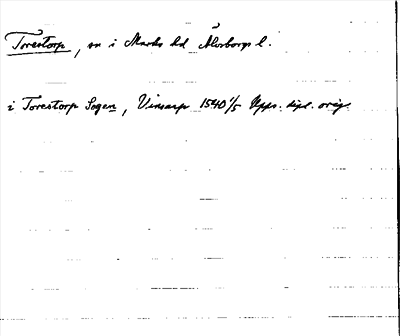 Torestorp, sn i Marks hd Älvborgs l.
i Torestorp Sogen, Vinsarp 1540 1/5 Upps. dipl. orig.